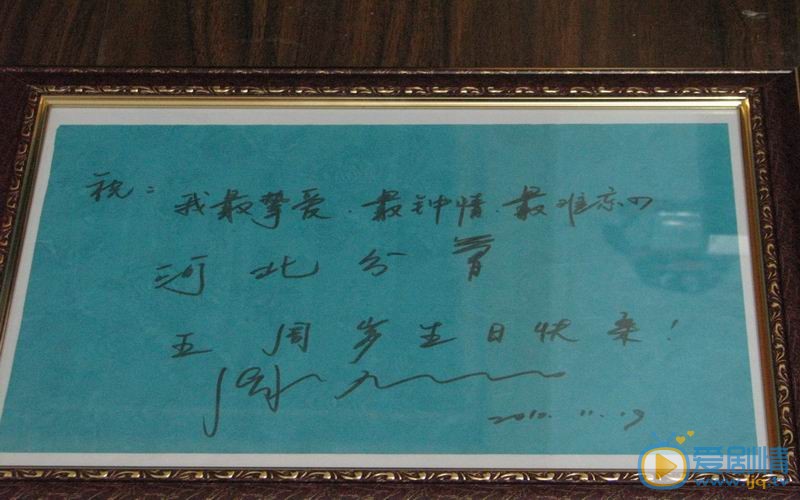 祝：
我最挚爱、最钟情、最难忘的
河北分会
五周岁生日快乐！
2010.11.19
爱剧情
www.ijq.tv